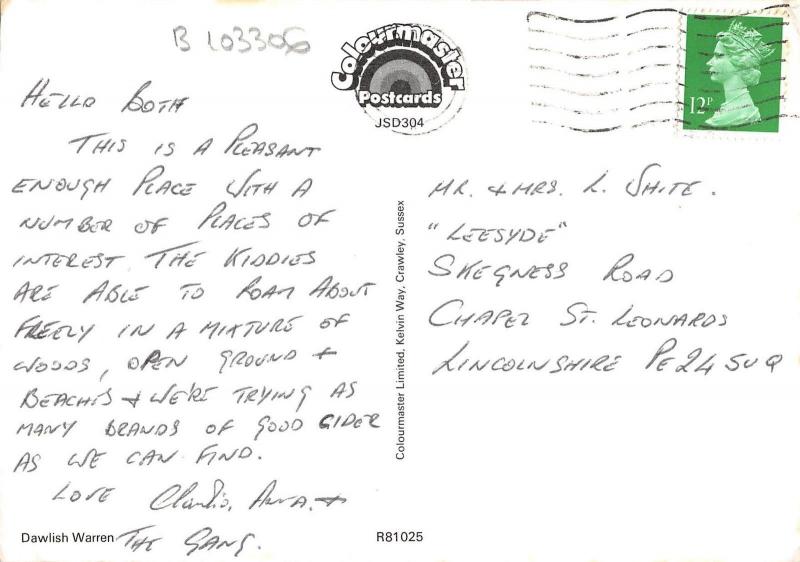 B L03306
Colourmaster
Postcards
JSD304
12P
HELLO BOTH
THIS IS A PLEASANT
ENOUGH PLACE WITH A
NUMBER OF PLACES OF
INTEREST. THE KIDDIES
ARE ABLE TO ROAM ABOUT
FREELY IN A MIXTURE OF
WOODS, OPEN GROUND +
BEACHES + WE'RE TRYING AS
MANY BRANDS OF GOOD CIDER
AS WE CAN FIND.
LOVE Anna +
THE GANG.
Dawlish Warren
Colourmaster Limited, Kelvin Way, Crawley, Sussex
R81025
MR. + MRS. L. WHITE.
"LEESYDE"
SKEGNESS ROAD
CHAPEL ST. LEONARDS
LINCOLNSHIRE PE24 5UQ